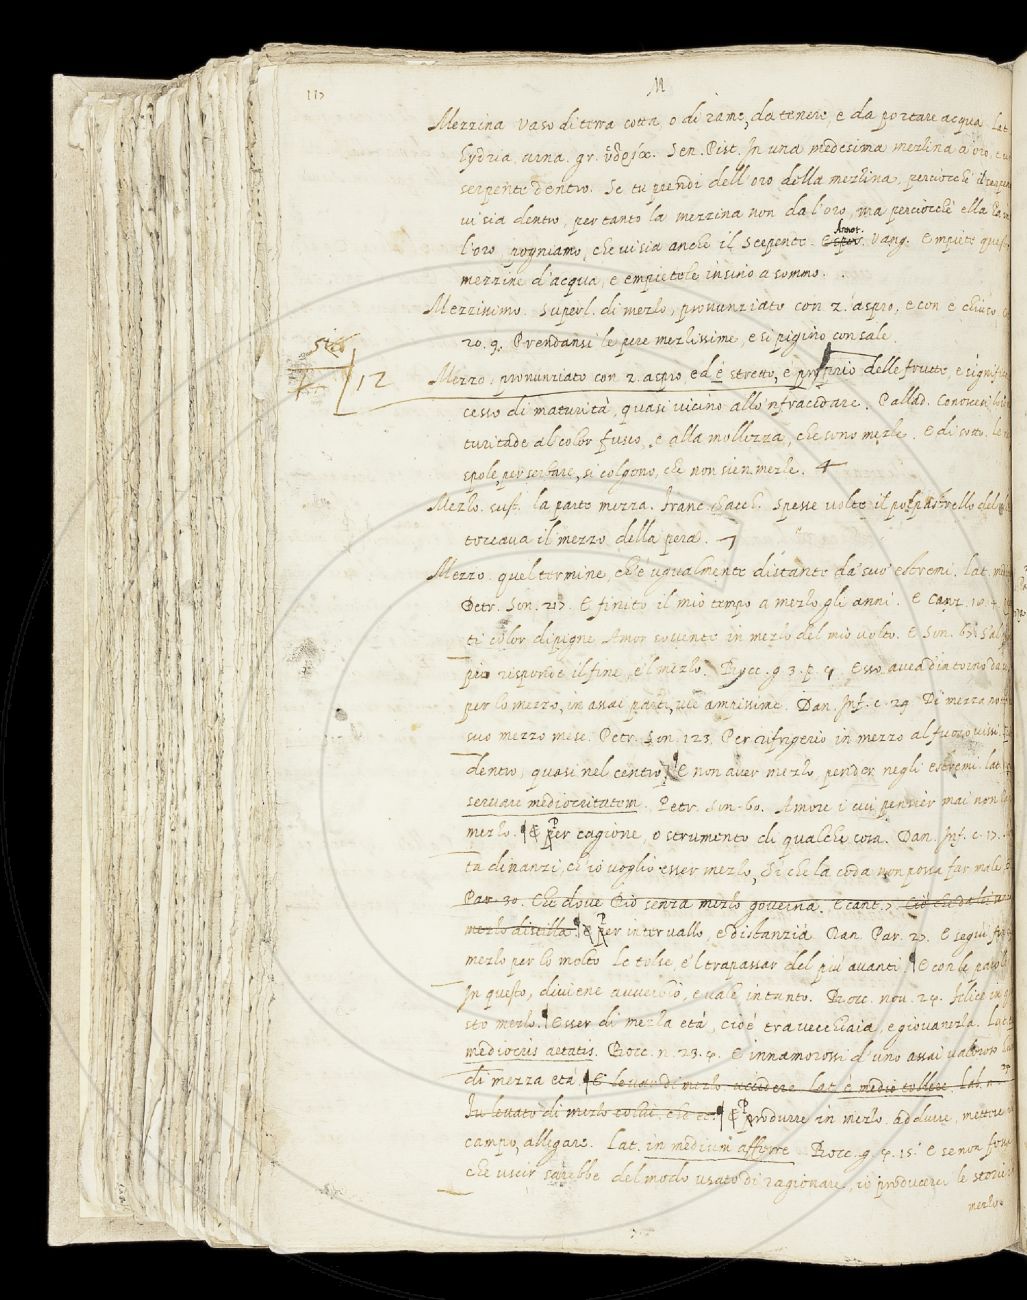 117
M
Mezzina vaso di terra cotta, o di rame, da tenere, e da portare acqua. Lat.
hydria, urna. gr. ὑδρία. Sen. Pist. In una medesima mezzina à oro, e un
serpente dentro. Se tu prendi dell'oro della mezzina, perciocchè il serpen
vi sia dentro, per tanto la mezzina non da l'oro, ma perciocchè ella
l'oro, pogniamo, che vi sia anche il serpente. Annot. Vang. Empiete queste
mezzine d'acqua, e empietele insino a sommo.
Mezzissimo. Superl. di mezzo, pronunziato con z. aspro, e con e chiuso,
20. 9. Prendansi le pere mezzissime, e si pigino con sale.
12
Mezzo, pronunziato con z. aspro ed é stretto, è proprio delle frutte, e signific
cesso di maturità, quasi vicino allo 'nfracidare. Pallad. Conoscesi
turitade al color fusco, e alla mollezza, che sono mezze. E di sotto. le
spole, per serbare, si colgono, che non sien mezze.
Mezzo. sust. la parte mezza. Franc. Sacch. Spesse volte il polpastrello del
toccava il mezzo della pera.
Mezzo. quel termine, ch'è ugualmente distante da suo' estremi. Lat.
Petr. Son. 217. E finito il mio tempo a mezzo gli anni. E canz.
ti color dipigne Amor sovente in mezzo del mio volto. E Son. 67. S'al
pio risponde il fine, e 'l mezzo. Bocc. g. 3. p. 4. Esso avea dintorno da
per lo mezzo, in assai parti, vie ampissime. Dan. Inf. c. 24. De mezza notte
suo mezzo mese. Petr. Son. 123. Per rifrigerio in mezzo al fuoco vissi.
dentro, quasi nel centro. E non aver mezzo, pender negli estremi. lat.
servare mediocritatem. Petr. Son. 60. Amore i cui pensier mai non
mezzo. E per cagione, o strumento di qualche cosa. Dan. Inf. c. 17.
ta dinanzi, ch'io voglio esser mezzo, Sì che la coda non possa far male
Par. 30. Che dove Dio senza mezzo governa. E cant. 7. Ciò che da lei
mezzo distilla. E per intervallo, e distanzia. Dan. Par. 27. E seguì fin
mezzo per lo molto Le tolse, e 'l trapassar del più avanti. E con le parole
In questo, diviene avverbio, e vale intanto. Bocc. nov. 24. Felice in que
sto mezzo. Esser di mezza età, cioè tra vecchiaia, e giovanezza. Lat.
mediocris aetatis. Bocc. n. 23. 4. E innamorossi d'uno assai valoroso
di mezza età. E levar di mezzo uccidere lat. e medio tollere.
Fu levato di mezzo colui, che ec. E Produrre in mezzo. addurre, mettere
campo, allegare. Lat. in medium afferre. Bocc. g. 4. 15. E se non fosse
che uscir sarebbe del modo usato di ragionare, io producerei le storie
mezzo.